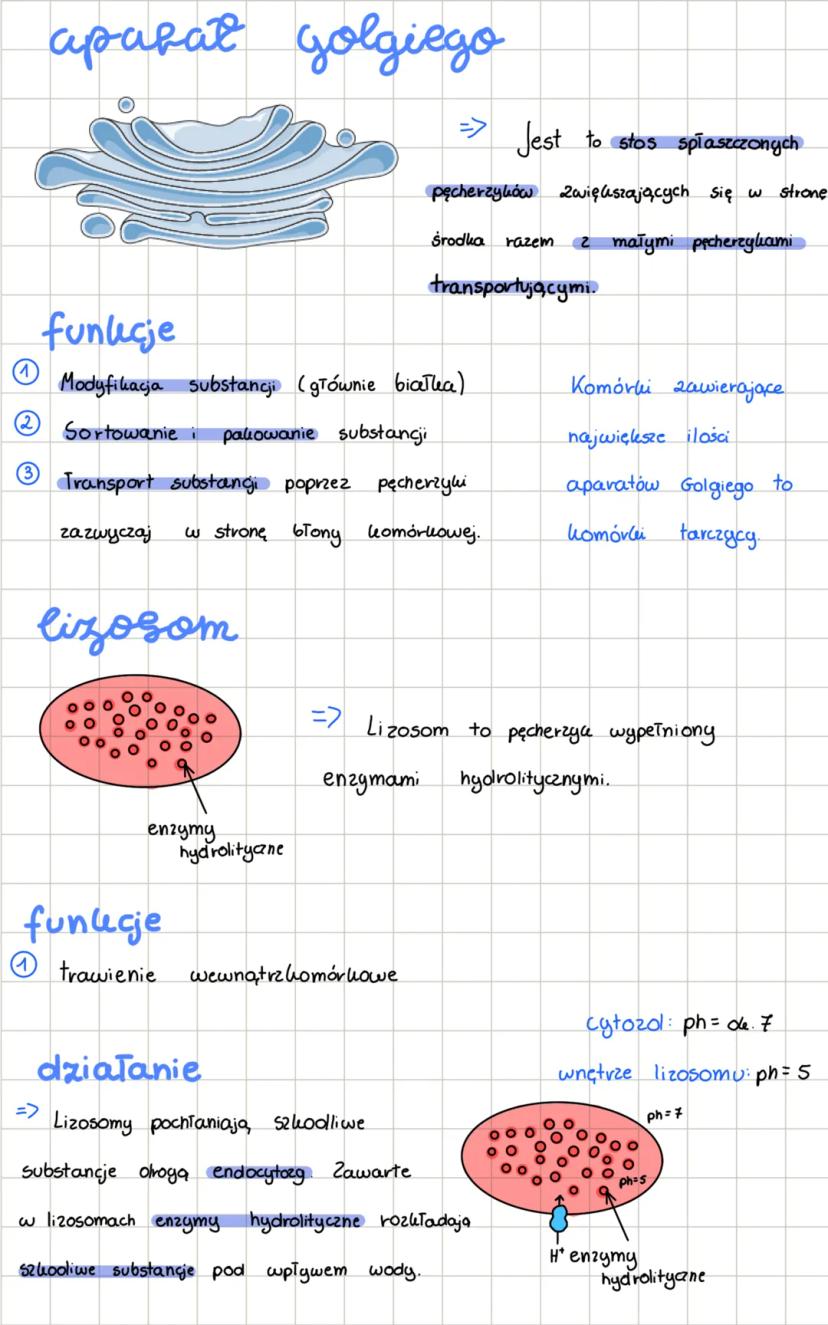 aparat Golgiego
=> Jest to stos spłaszczonych
pęcherzyków zwiększających się w stronę
środka razem z małymi pęcherzykami
transportującymi.
funkcje
1 Modyfikacja substancji (głównie białka)
2 Sortowanie i pakowanie substancji
3 Transport substancji poprzez pęcherzyki
zazwyczaj w stronę błony komórkowej.
Komórki zawierające
największe ilości
aparatów Golgiego to
komórki tarczycy.
lizosom
=> Lizosom to pęcherzyk wypełniony
enzymami hydrolitycznymi.
enzymy
hydrolityczne
funkcje
1 trawienie wewnątrzkomórkowe
cytozol: ph = ok. 7
wnętrze lizosomu: ph = 5
działanie
=> Lizosomy pochłaniają szkodliwe
substancje drogą endocytozy. Zawarte
w lizosomach enzymy hydrolityczne rozkładają
szkodliwe substancje pod wpływem wody.
ph=7
ph=5
H⁺ enzymy
hydrolityczne